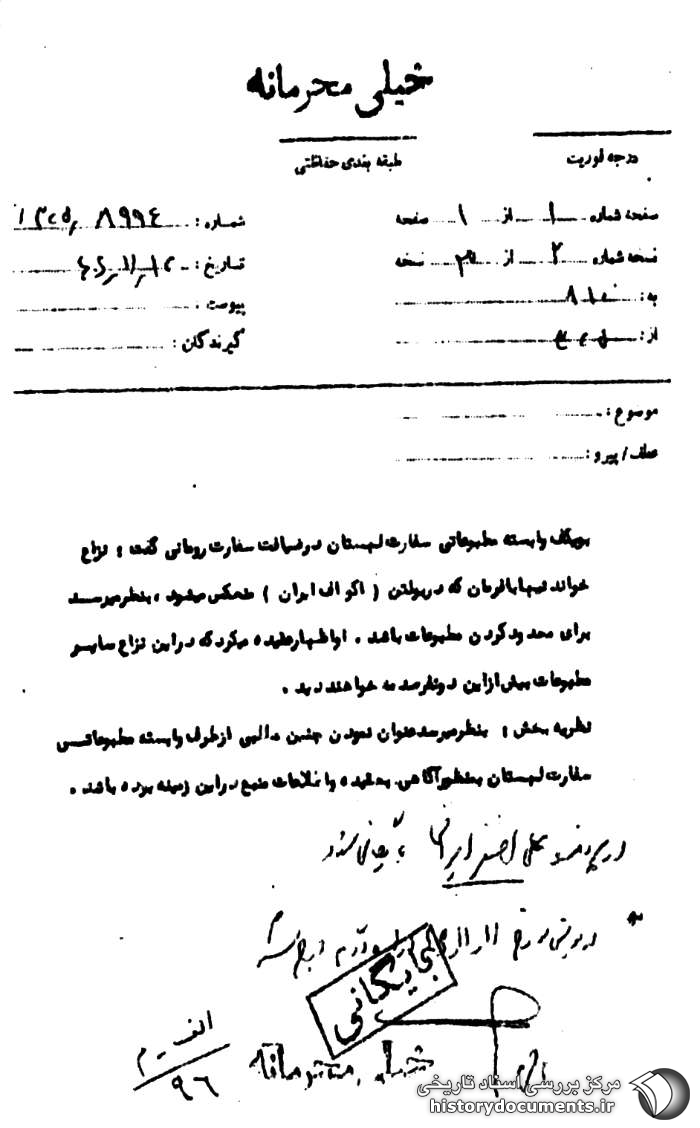 خیلی محرمانه
درجه فوریت
طبقه بندی حفاظتی
صفحه شماره ۱ از ۱ صفحه
شماره : ۸۹۹٤
نسخه شماره ۲ از ۳ نسخه
تاریخ :
به :
پیوست :
از :
گیرندگان :
موضوع :
عطف / پیرو :
وابسته مطبوعاتی سفارت لهستان در ضیافت سفارت رومانی گفت : نزاع
خواندنیها با فرمان که در بولتن ( اکو اف ایران ) منعکس میشود ، بنظر میرسد
برای محدود کردن مطبوعات باشد . او اظهار عقیده میکرد که در این نزاع سایر
مطبوعات بیش از این دو نفر صدمه خواهند دید .
نظریه بخش : بنظر میرسد عنوان نمودن چنین مطالبی از طرف وابسته مطبوعاتی
سفارت لهستان بمنظور آگاهی به عقیده و اطلاعات منبع در این زمینه بوده باشد .
در پرونده بایگانی شود
در
بایگانی
الف - م
۹٦
خیلی محرمانه
مرکز بررسی اسناد تاریخی
historydocuments.ir